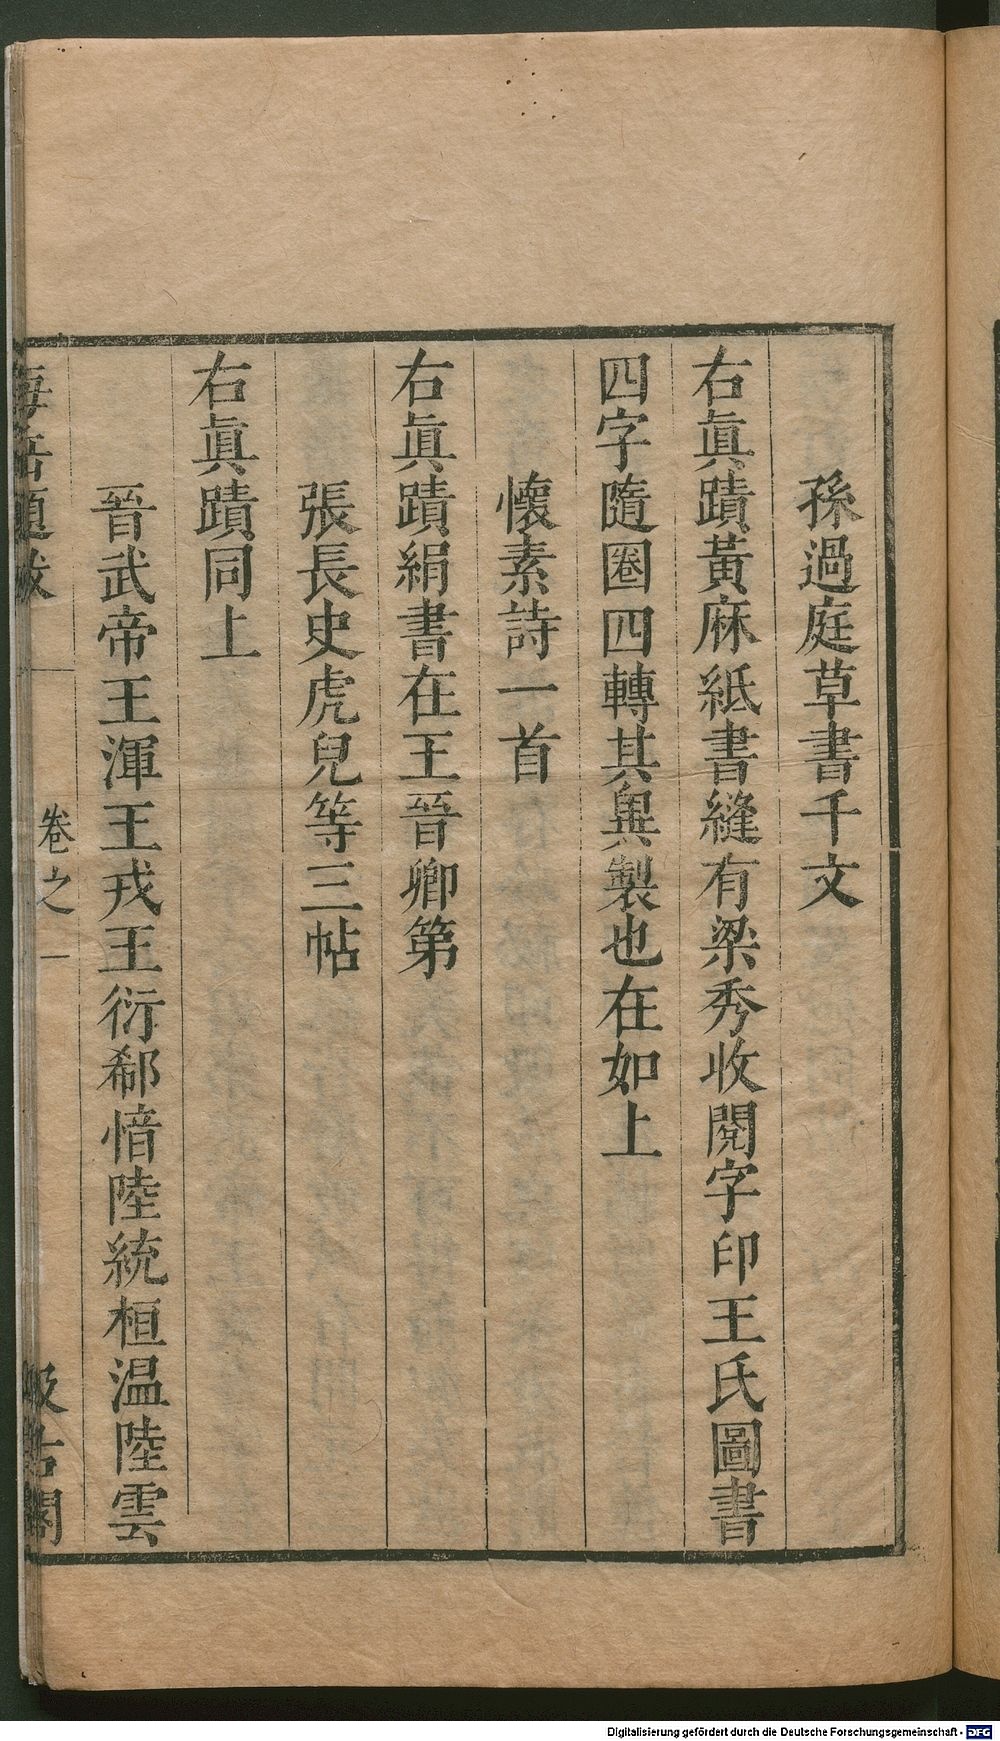 孫過庭草書千文
右眞蹟黃麻紙書縫有梁秀收閱字印王氏圖書
四字隨圈四轉其異製也在如上
懷素詩一首
右眞蹟絹書在王晉卿第
張長史虎兒等三帖
右眞蹟同上
晉武帝王渾王戎王衍郗愔陸統桓温陸雲
海岳題跋
卷之一
汲古閣
Digitalisierung gefördert durch die Deutsche Forschungsgemeinschaft - DFG